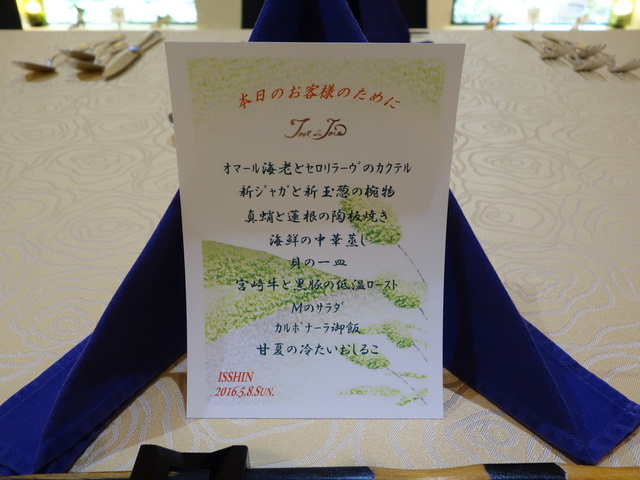 本日のお客様のために
オマール海老とセロリラーヴのカクテル
新ジャガと新玉葱の椀物
真蛸と蓮根の陶板焼き
海鮮の中華蒸し
貝の一皿
宮崎牛と黒豚の低温ロースト
Mのサラダ
カルボナーラ御飯
甘夏の冷たいおしるこ
ISSHIN
2016.5.8.SUN.